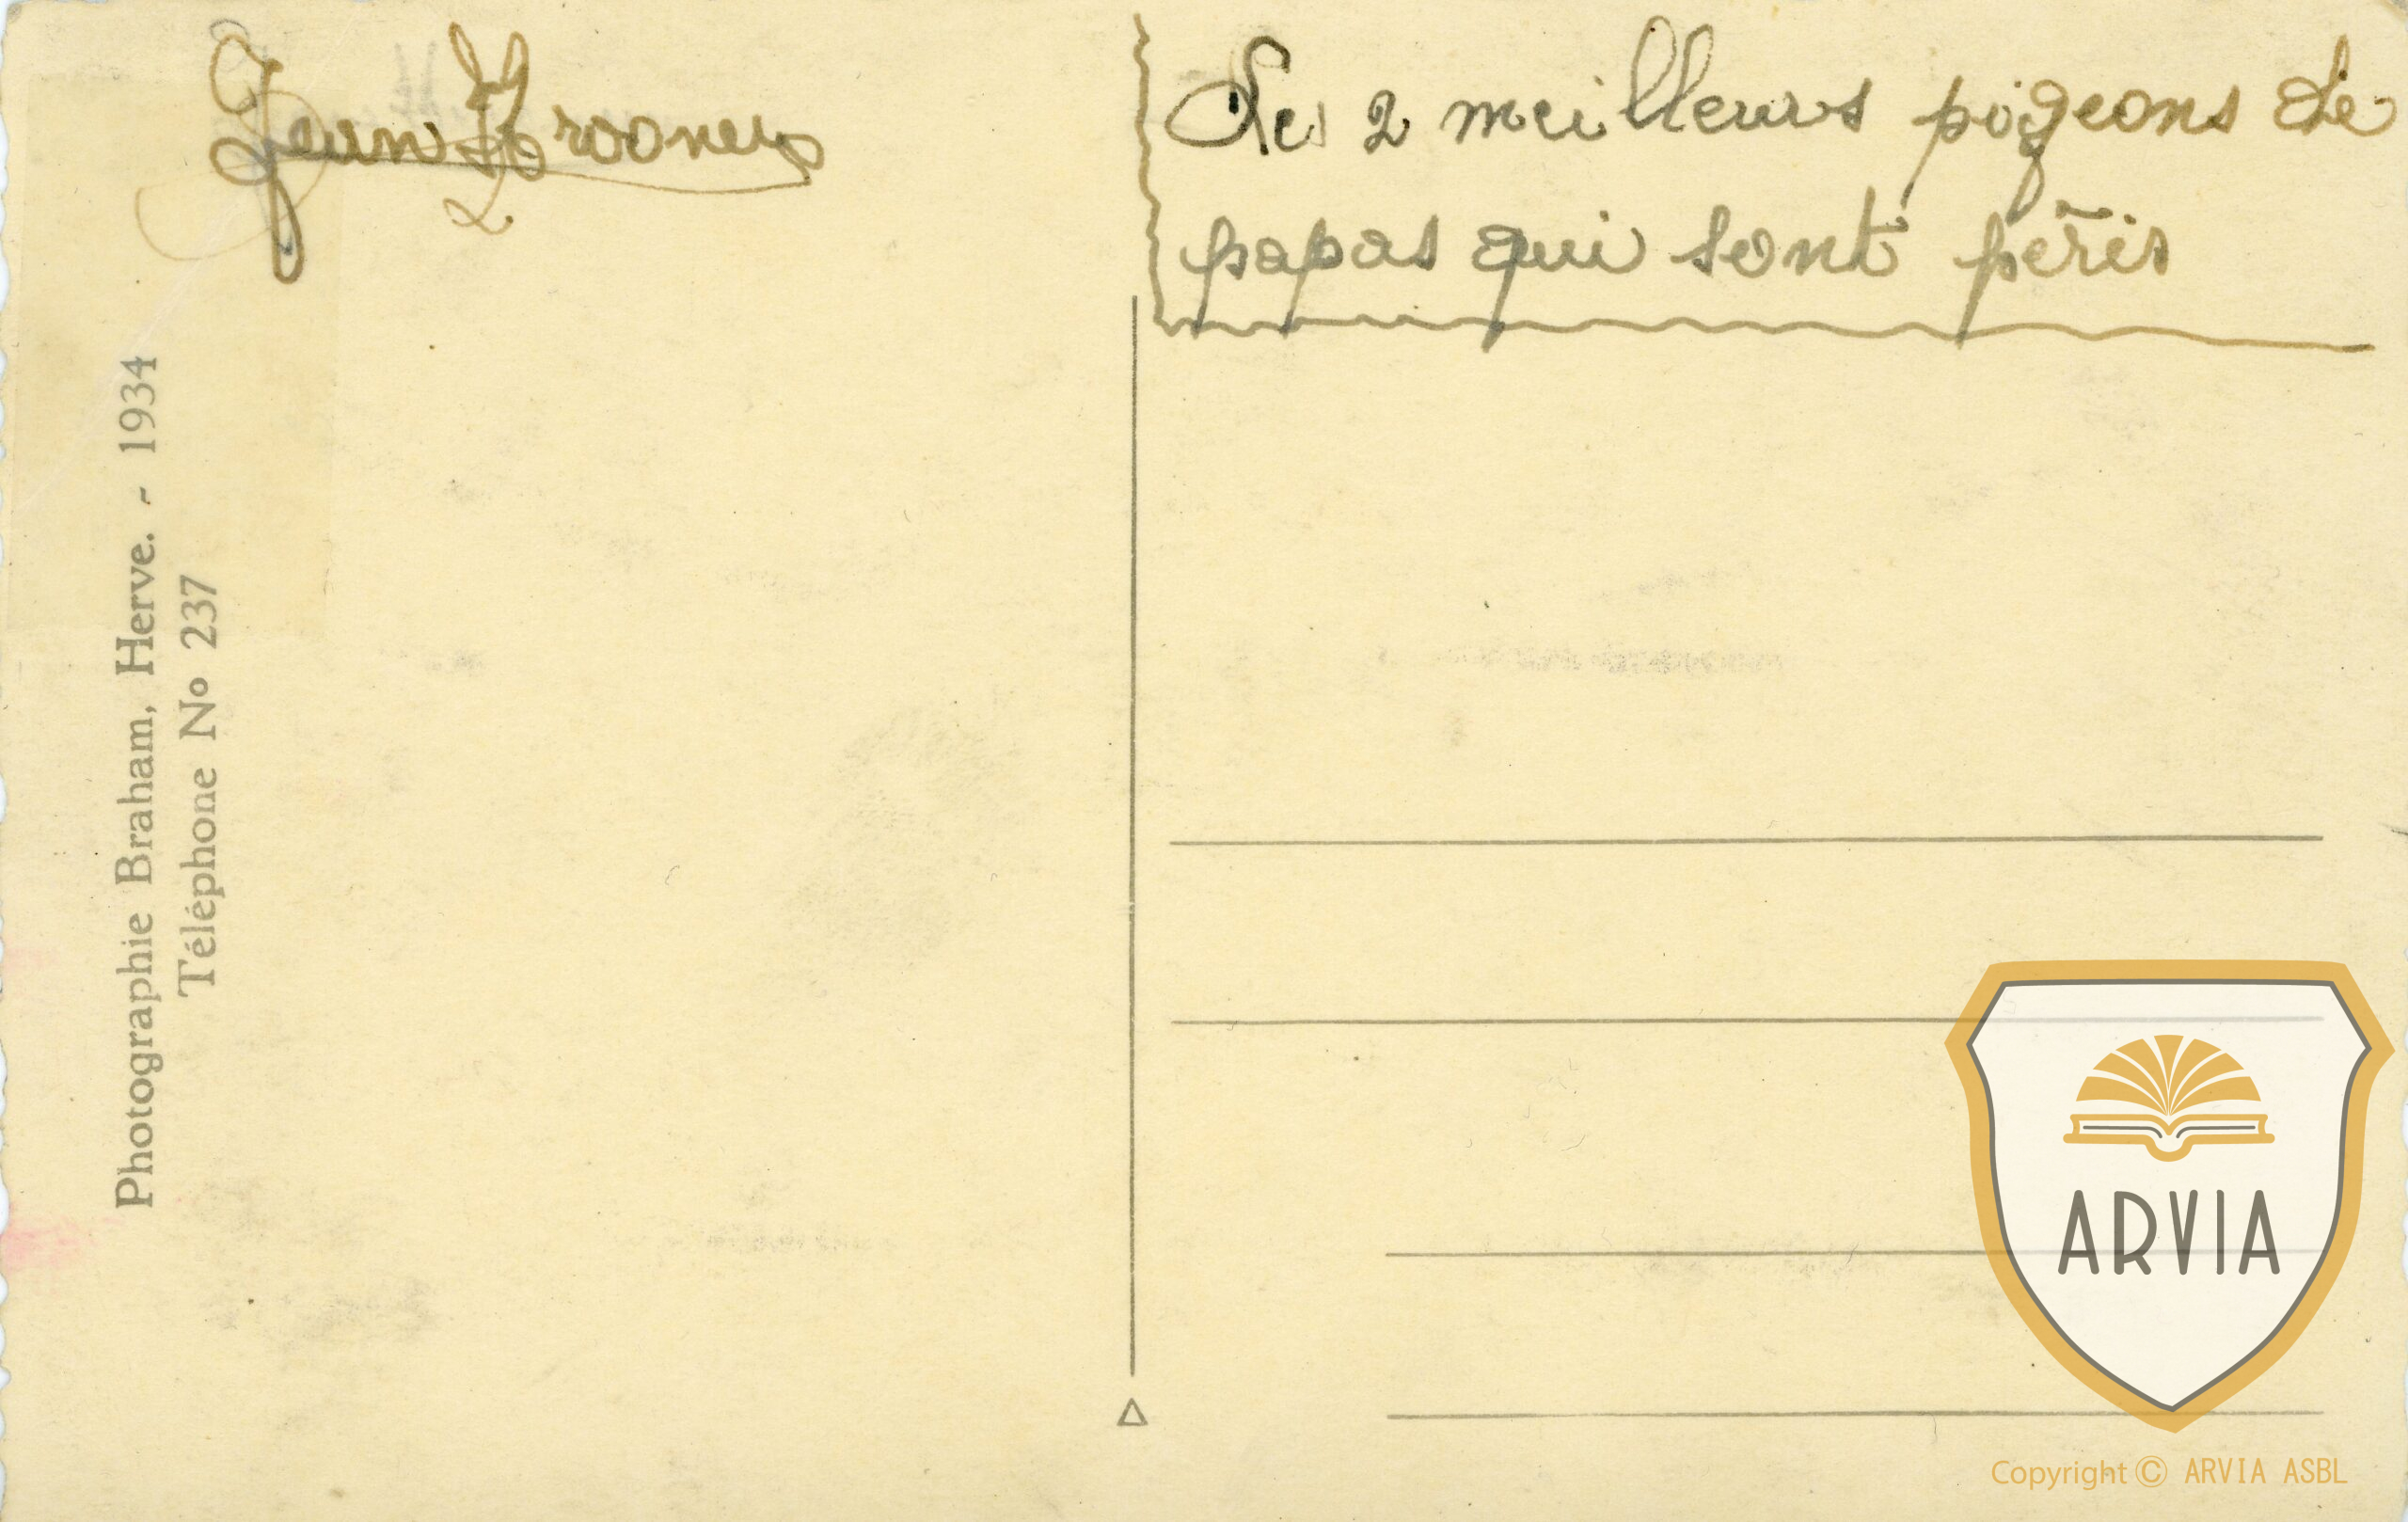 Jean Krooners
Les 2 meilleurs pigeons de
papas qui sont péris
Photographie Braham, Herve. - 1934
Téléphone No 237
ARVIA
Copyright © ARVIA ASBL